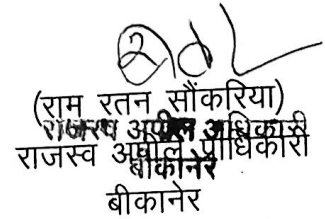 (राम रतन सौंकरिया)
राजस्व अपील अधिकारी
राजस्व अपील प्राधिकारी
बीकानेर
बीकानेर